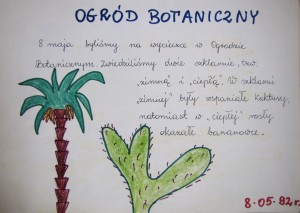 OGRÓD BOTANICZNY
8 maja byliśmy na wycieczce w Ogrodzie
Botanicznym. Zwiedziliśmy dwie szklarnie, tzw.
„zimną" i „ciepłą". W szklarni
„zimnej" były wspaniałe kaktusy,
natomiast w „ciepłej" rosły
okazałe bananowce.
8.05.82r.